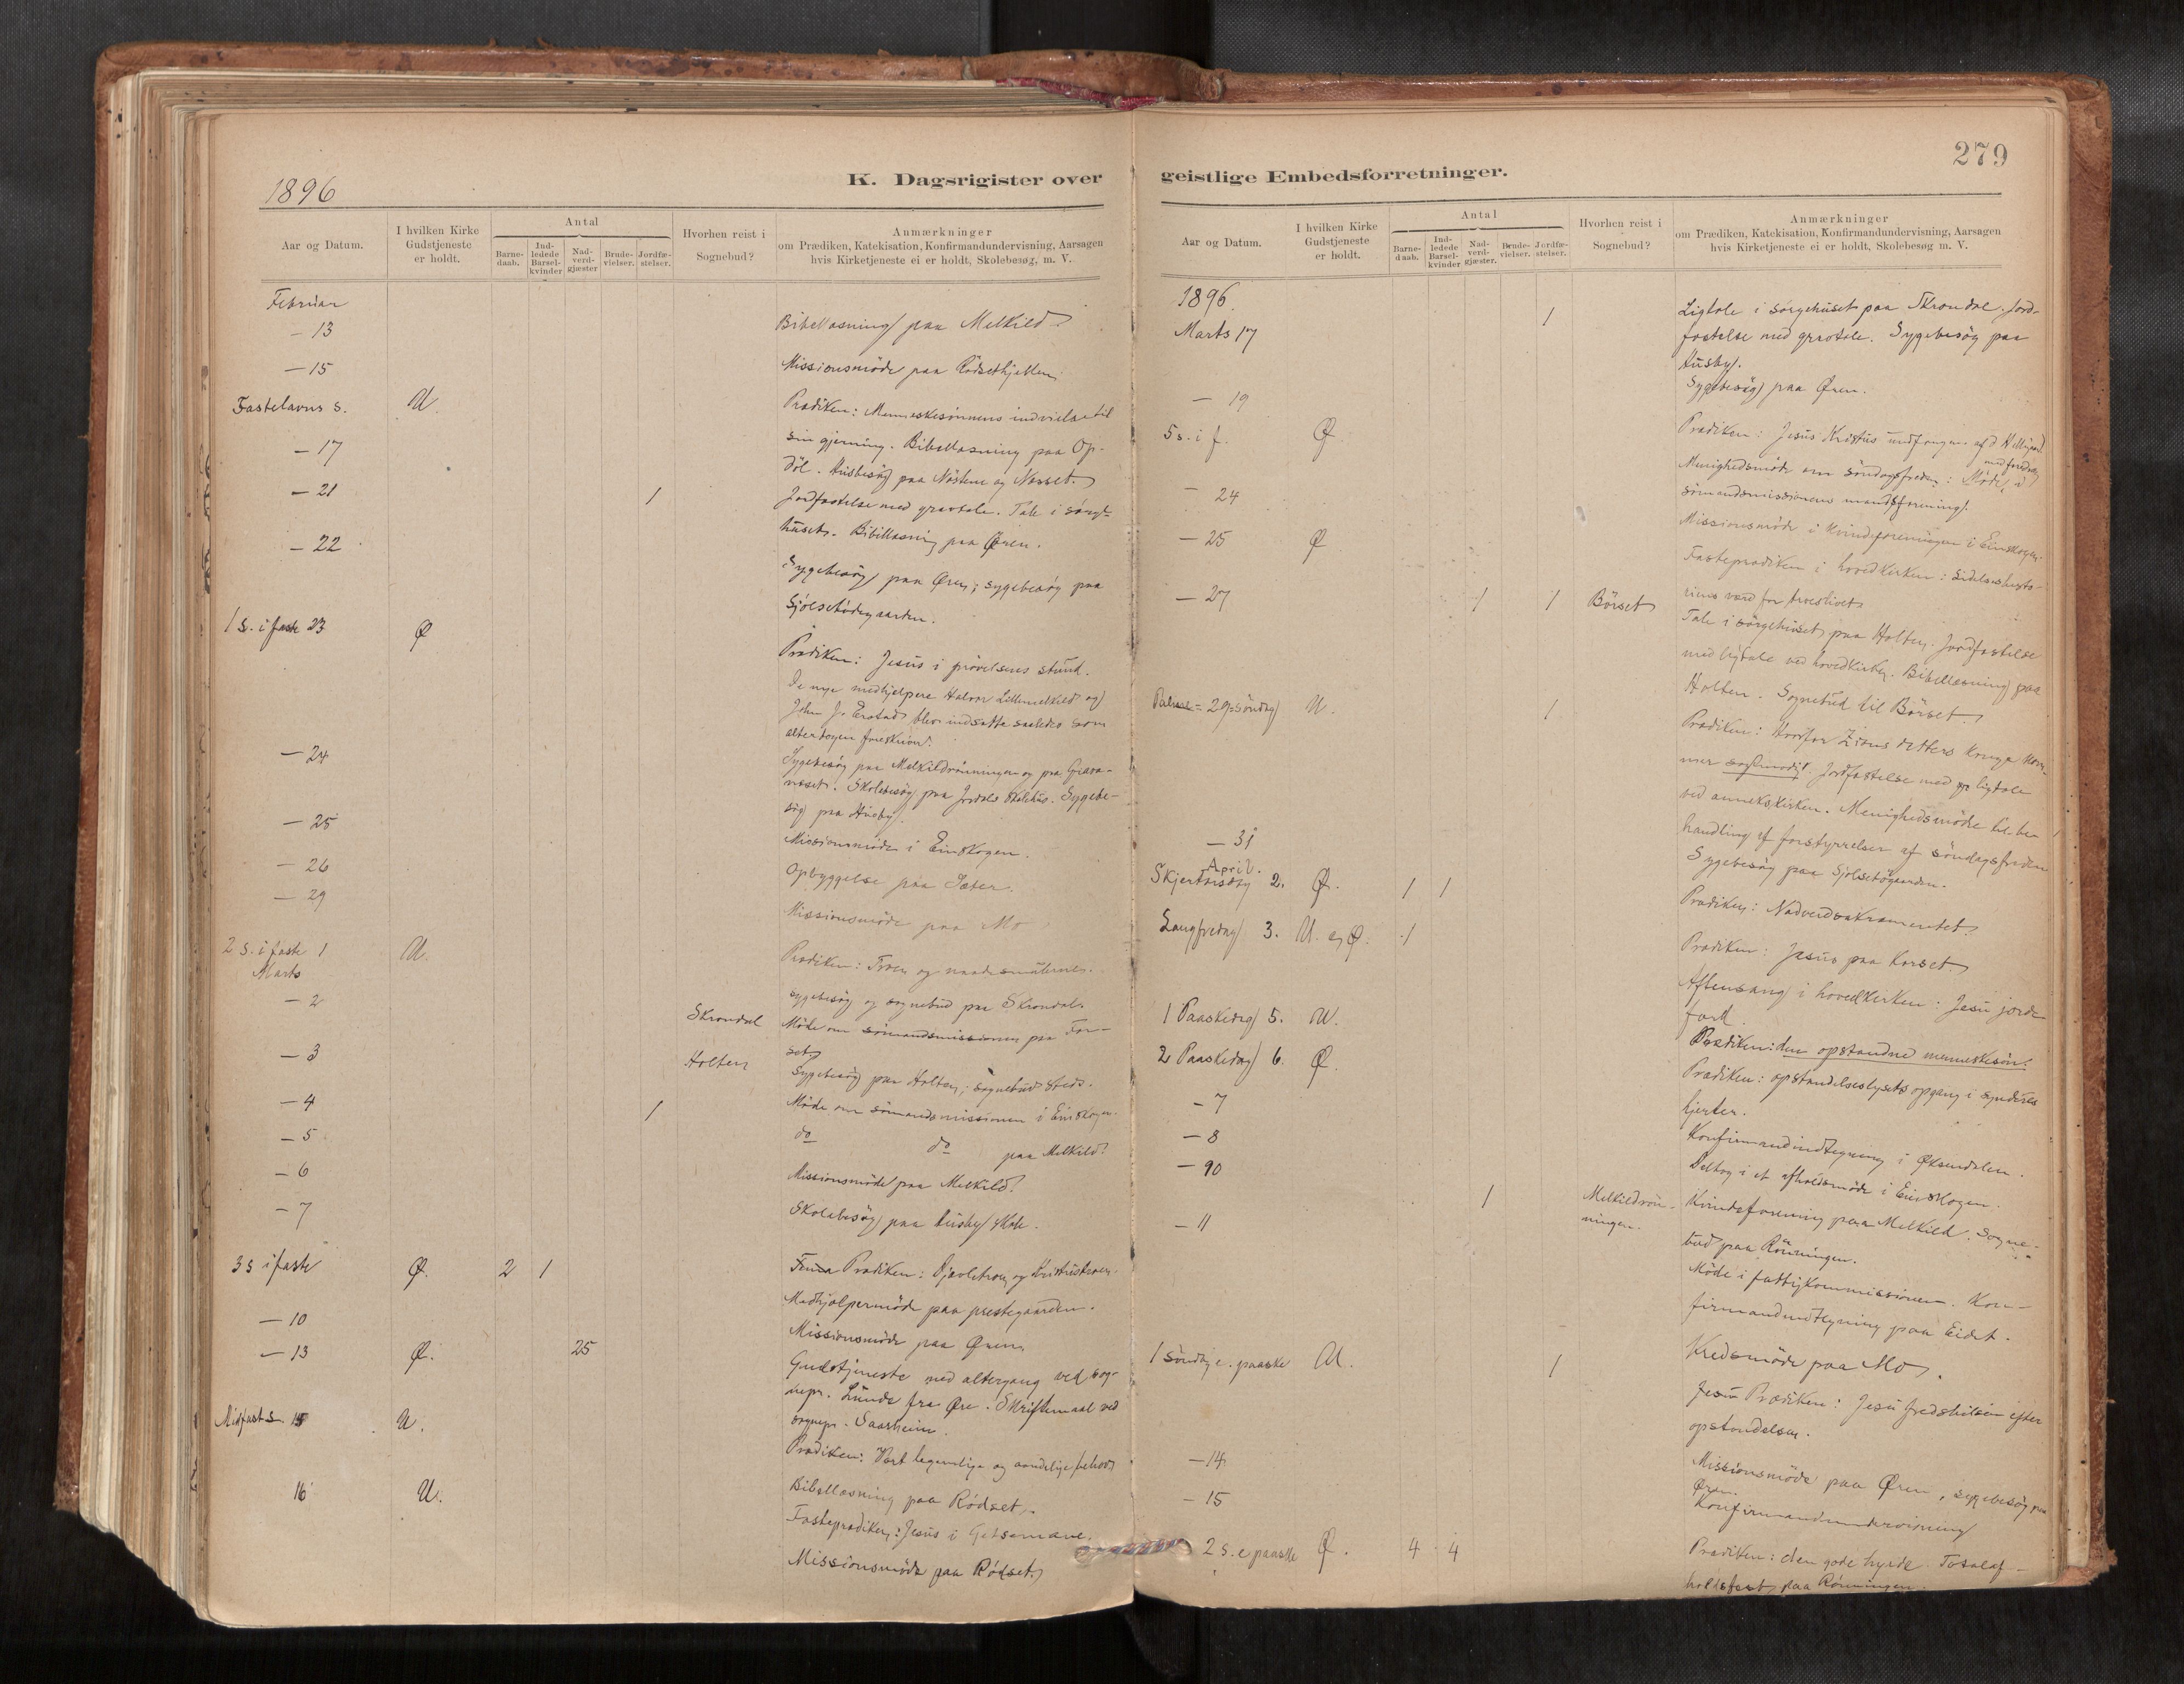 1896
K. Dagsrigister over
Aar og Datum.
I hvilken Kirke Gudstjeneste er holdt.
Antal
Barne-daab.
Ind-ledede Barsel-kvinder
Nad-verd-gjæster
Brude-vielser.
Jordfæ-stelser.
Hvorhen reist i Sognebud?
Anmærkninger
om Prædiken, Katekisation, Konfirmandundervisning, Aarsagen
hvis Kirketjeneste ei er holdt, Skolebesøg, m. V.
Februar
— 13 Bibellæsning paa Melkild
— 15 Missionsmöde paa Rödsethjellen.
Fastelavns s. U. Prædiken: Menneskesönnens indvielse til
sin gjerning. Bibellæsning paa Op-
— 17 döl. Husbesög paa Nöstene og Nesset.
— 21 1 Jordfæstelse med gravtale. Tale i sörge-
huset. Bibellæsning paa Øren.
— 22 Sygebesög paa Øren; sygebesög paa
Sjölsetödegaarden.
1 s. i faste 23 Ø Prædiken: Jesus i prövelsens stund.
De nye medhjelpere Halvor Lillemelkild og
John J. Erstad blev indsatte saaledes som
alterbogen foreskriver.
— 24 Sygebesög paa Melkildrönningen og paa Grava-
neset. Skolebesög paa Jordals skolehus. Sygebe-
sög paa Husby.
— 25 Missionsmöde i Einskogen.
— 26 Opbyggelse paa Sæter.
— 29 Missionsmöde paa Mo
2 s. i faste 1 U. Prædiken: Troen og naadesmidlerne.
Marts
— 2 Skrondal sygebesög og sognebud paa Skrondal.
Möde om sömandsmissionen paa For-
set
— 3 Holten Sygebesög paa Holten; sognebud steds.
— 4 1 Möde om sömandsmissionen i Einskogen.
— 5 do do paa Melkild
— 6 Missionsmöde paa Melkild.
— 7 Skolebesög paa Husby skole.
3 s i faste Ø. 2 1 Prædiken: Djævletroen og Kristustroen.
— 10 Medhjælpermöde paa prestegaarden.
Missionsmöde paa Øren
— 13 Ø. 25 Gudstjeneste med altergang ved sog-
nepr. Lunde fra Øre. Skriftemaal ved
sognepr. Saarheim.
Midfast s. 15 U. Prædiken: Vort legemlige og aandelige behov
Bibellæsning paa Rödset.
16 U. Fasteprædiken: Jesus i Getsemane.
Missionsmöde paa Rödset.
279
geistlige Embedsforretninger.
Aar og Datum.
I hvilken Kirke Gudstjeneste er holdt.
Antal
Barne-daab.
Ind-ledede Barsel-kvinder
Nad-verd-gjæster.
Brude-vielser.
Jordfæ-stelser.
Hvorhen reist i Sognebud?
Anmærkninger
om Prædiken, Katekisation, Konfirmandundervisning, Aarsagen
hvis Kirketjeneste ei er holdt, Skolebesøg m. V.
1896.
Marts 17 1 Ligtale i sörgehuset paa Skrondal. Jord-
fæstelse med gravtale. Sygebesög paa
Husby.
— 19 Sygebesög paa Øren.
5 s. i f. Ø Prædiken: Jesus Kristus undfangen af d Helligaand.
Menighedsmöde om söndagsfreden: Möde med foredrag i
— 24 sömandsmissionens mandsforening.
Missionsmöde i Kvindeforeningen i Einskogen.
— 25 Ø Fasteprædiken i hovedkirken: Lidelseshisto-
riens værd for troeslivet.
— 27 1 1 Börset Tale i sörgehuset paa Holten. Jordfæstelse
med ligtale ved hovedkirken. Bibellæsning paa
Holten. Sognebud til Börset.
Palme- 29. söndag U. 1 Prædiken: Hvorfor Zions datters konge kom-
mer sagtmodig. Jordfæstelse med ligtale
ved annekskirken. Menighedsmöde til be-
handling af forstyrrelser af söndagsfreden
— 31 Sygebesög paa Sjölsetögaarden.
April.
Skjertorsdag 2. Ø. 1 1 Prædiken: Nadverdsakramentet.
Langfredag 3. U. og Ø. 1 Prædiken: Jesus paa korset.
Aftensang i hovedkirken: Jesu jorde
færd.
1 Paaskedag 5. U. Prædiken: den opstandne menneskesön.
2 Paaskedag 6. Ø. Prædiken: opstandelseslysets opgang i synderes
hjerter.
— 7 Konfirmandindtegning i Øksendalen.
— 8 Deltog i et afholdsmöde i Einskogen.
— 90 1 Melkildrön-ningen. Kvindeforening paa Melkild. Sogne-
bud paa Rönningen.
— 11 Möde i fattigkommissionen. Kon-
firmandindtegning paa Eidet.
Kredsmöde paa Mo.
1 söndag e. paaske U. 1 Jesu Prædiken: Jesu fredshilsen efter
opstandelsen.
— 14 Missionsmöde paa Øren, sygebesög paa
Øren.
— 15 Konfirmandundervisning
2 s. e paaske Ø. 4 4 Prædiken: den gode hyrde. Totalaf-
holdsfest paa Rönningen.